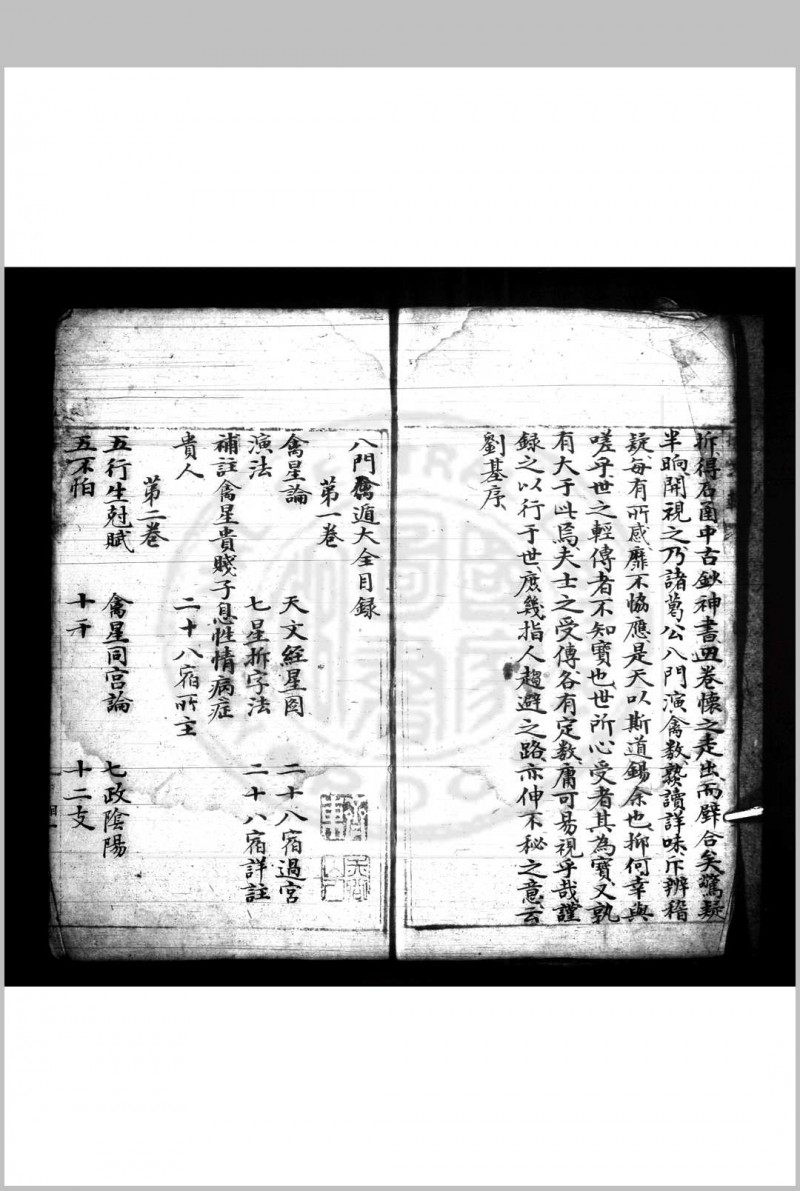 折得石函中古鈔神書四卷懷之走出而壁合矣驚疑
半晌開視之乃諸葛公八門演禽数熟讀詳味斤辨稽
疑每有所感靡不協應是天以斯道錫余也抑何幸與
嗟乎世之輕傳者不知寶也世所心受者其為寶又孰
有大于此焉夫士之受傳各有定数庸可易視乎哉謹
録之以行于世庶幾指人趨避之路亦伸不秘之意云
劉基序
八門禽遁大全目録
第一卷
禽星論 天文經星图 二十八宿過宮
演法 七星折字法 二十八宿詳註
補註禽星貴賤子息性情病症
貴人 二十八宿所主
第二卷
五行生尅賦 禽星同宫論 七政陰陽
五不怕 十干 十二支